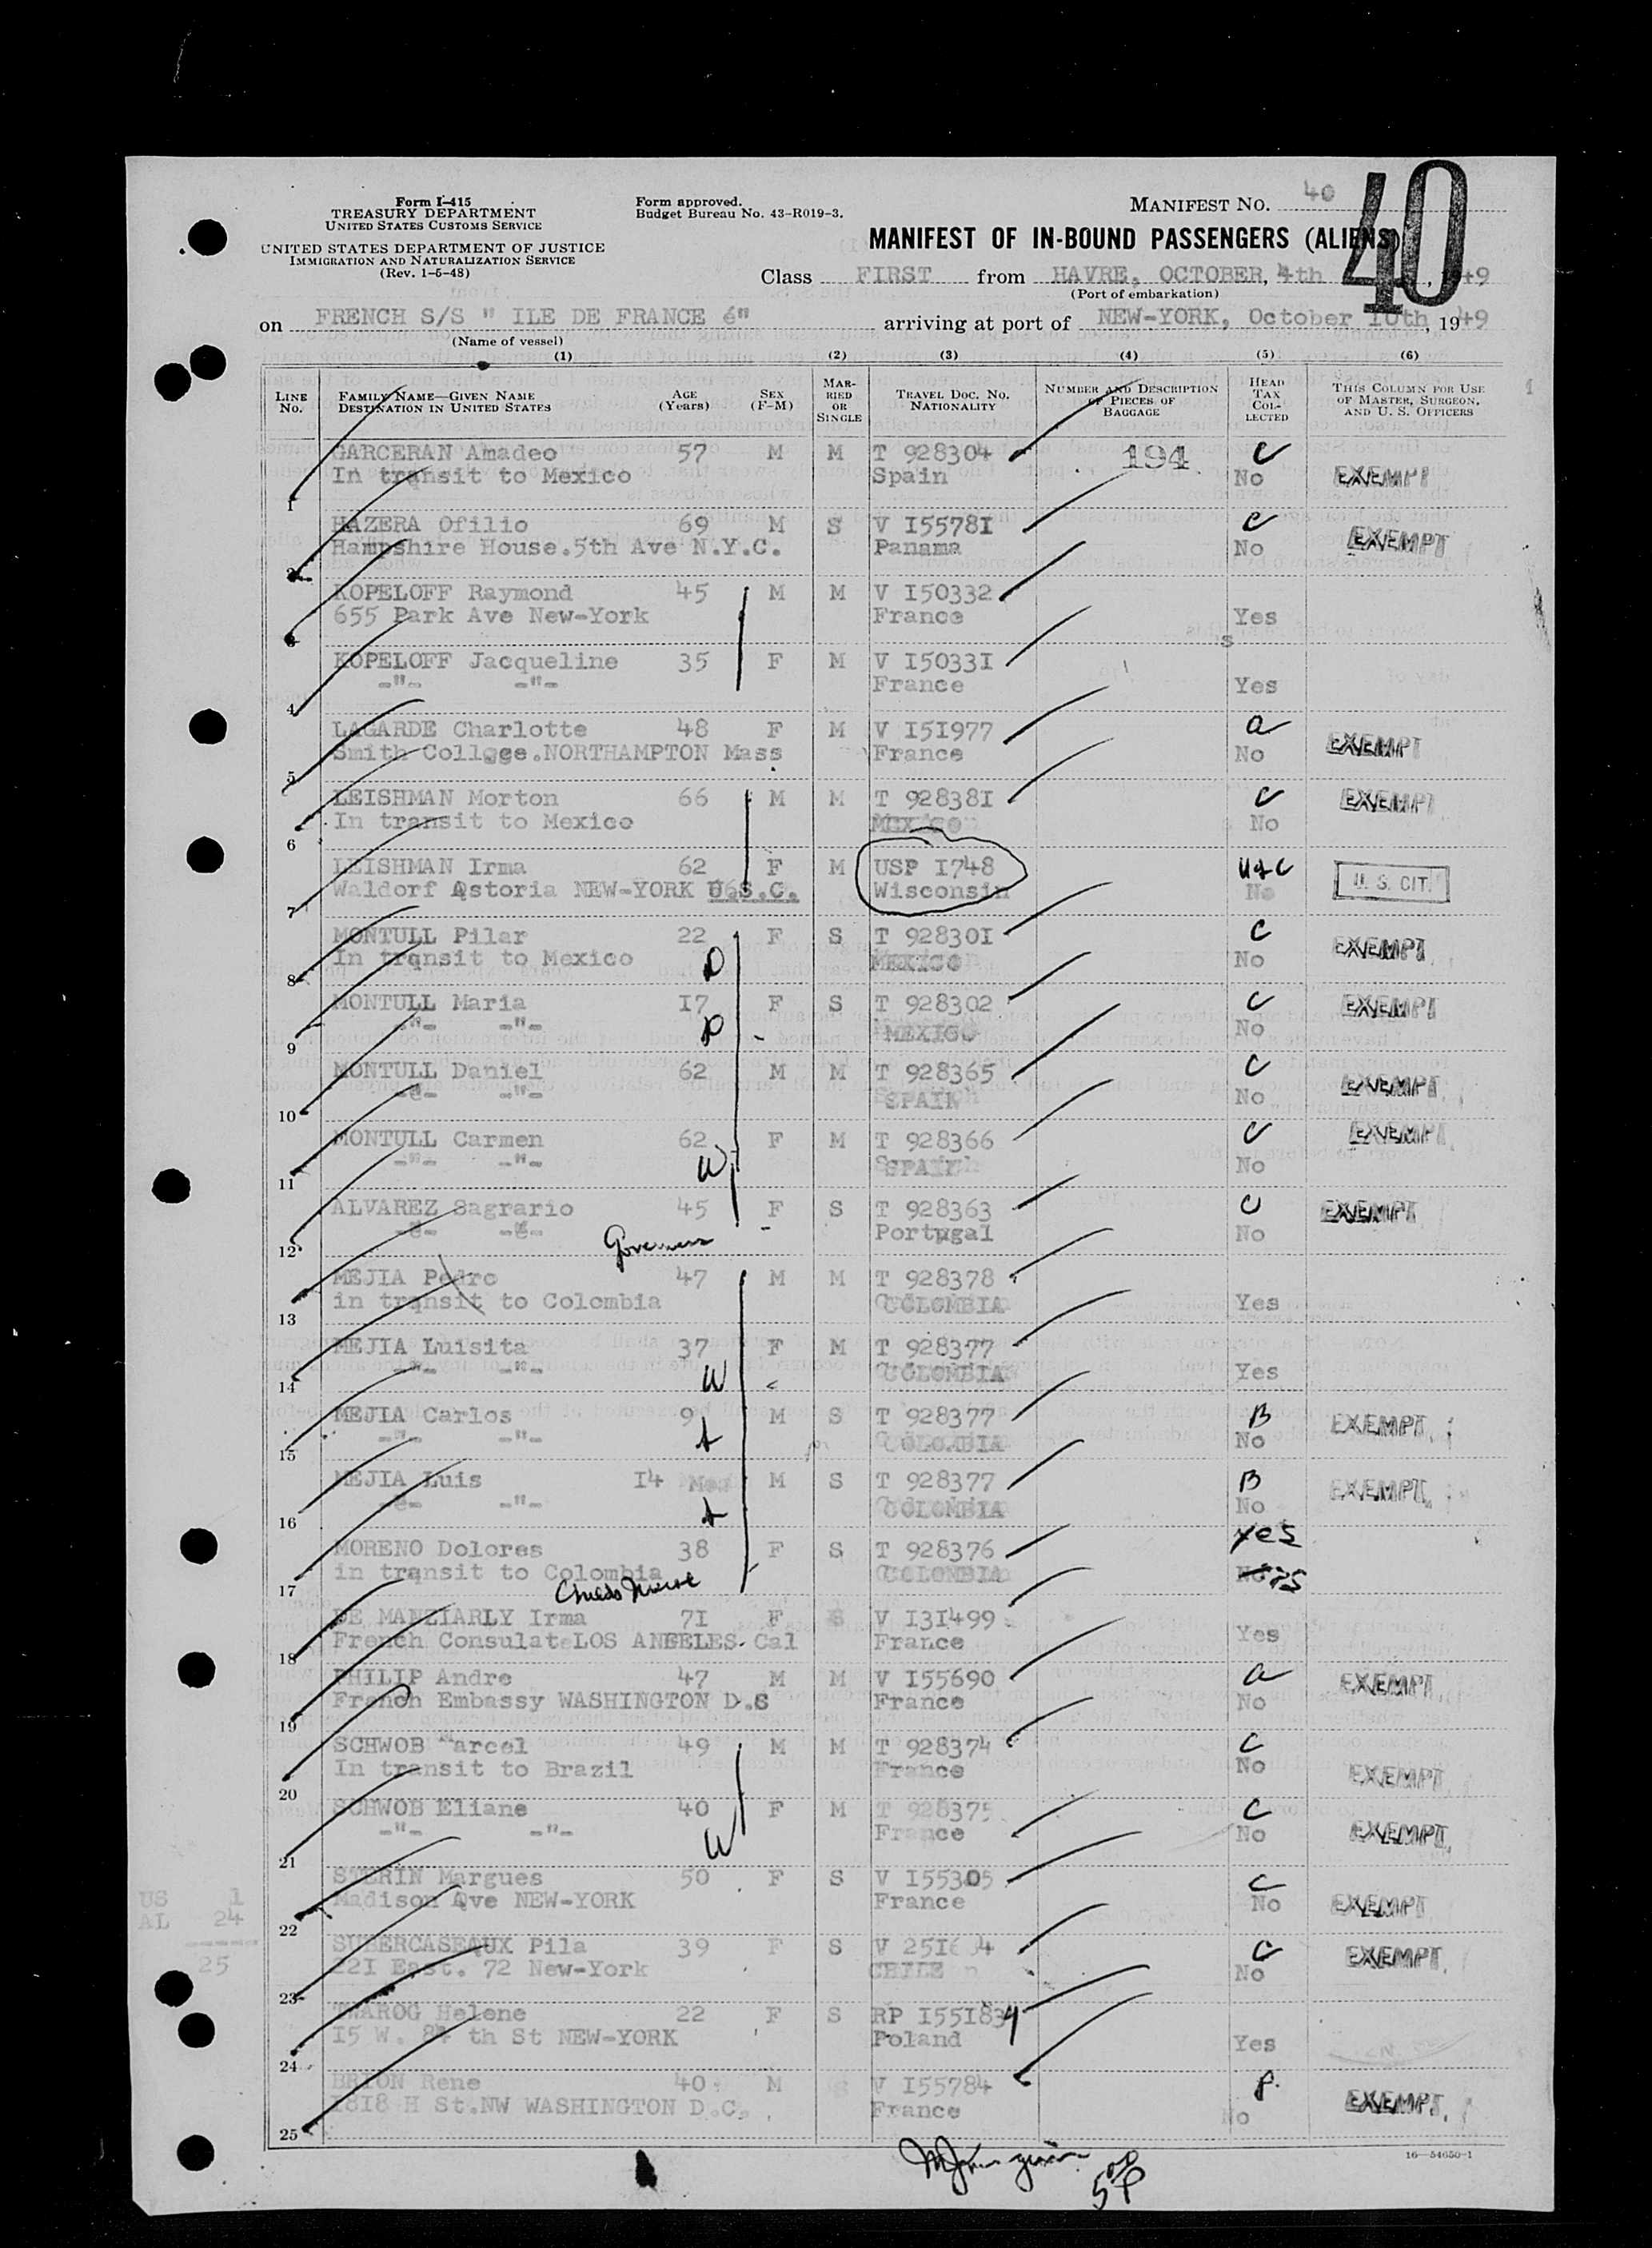 Form I-415
TREASURY DEPARTMENT
UNITED STATES CUSTOMS SERVICE
UNITED STATES DEPARTMENT OF JUSTICE
IMMIGRATION AND NATURALIZATION SERVICE
(Rev. 1-5-48)
Form approved.
Budget Bureau No. 43-R019-3.
MANIFEST NO. 40
40
MANIFEST OF IN-BOUND PASSENGERS (ALIENS)
Class FIRST from HAVRE, OCTOBER, 4th , 1949
(Port of embarkation)
on FRENCH S/S " ILE DE FRANCE 6" arriving at port of NEW-YORK, October 10th , 19 49
(Name of vessel)
(1) (2) (3) (4) (5) (6)
LINE No. FAMILY NAME—GIVEN NAME DESTINATION IN UNITED STATES AGE (Years) SEX (F-M) MARRIED OR SINGLE TRAVEL DOC. NO. NATIONALITY NUMBER AND DESCRIPTION OF PIECES OF BAGGAGE HEAD TAX COLLECTED THIS COLUMN FOR USE OF MASTER, SURGEON, AND U. S. OFFICERS
GARCERAN Amadeo 57 M M T 928304 194 C
1 In transit to Mexico Spain No EXEMPT
HAZERA Ofilio 69 M S V I5578I C
2 Hampshire House.5th Ave N.Y.C. Panama No EXEMPT
KOPELOFF Raymond 45 M M V I50332
3 655 Park Ave New-York France Yes
s
KOPELOFF Jacqueline 35 F M V I5033I
4 -"- -"- France Yes
LAGARDE Charlotte 48 F M V I5I977 a
5 Smith Collgge.NORTHAMPTON Mass France No EXEMPT
LEISHMAN Morton 66 M M T 92838I C EXEMPT
6 In transit to Mexico MEXICO No
LEISHMAN Irma 62 F M USP I748 USC
7 Waldorf Qstoria NEW-YORK U.S.C. Wisconsin No U. S. CIT.
MONTULL Pilar 22 F S T 92830I C
8 In trqnsit to Mexico D MEXICO No EXEMPT
MONTULL Maria I7 F S T 928302 C EXEMPT
9 -"- -"- D MEXICO No
MONTULL Daniel 62 M M T 928365 C
10 -"- SPAIN No EXEMPT
MONTULL Carmen 62 F M T 928366 C EXEMPT
11 -"- -"- W SPAIN No
ALVAREZ Sagrario 45 F S T 928363 C EXEMPT
12 Portugal No
Governess
MEJIA Pedro 47 M M T 928378
13 in trqnsit to Colombia COLOMBIA Yes
MEJIA Luisita 37 F M T 928377
14 -"- -"- W COLOMBIA Yes
MEJIA Carlos 9 M S T 928377 B
15 -"- -"- COLOMBIA No EXEMPT
MEJIA Luis I4 Mos M S T 928377 B EXEMPT
16 -"- COLOMBIA No
MORENO Dolores 38 F S T 928376 yes
17 in trqnsit to Colombia COLOMBIA
Childs Nurse
DE MANZIARLY Irma 7I F S V I3I499
18 French Consulat LOS ANGELES. Cal France Yes
PHILIP Andre 47 M M V I55690 a
19 French Embassy WASHINGTON D.S France No EXEMPT
SCHWOB Marcel 49 M M T 928374 C
20 In transit to Brazil France No EXEMPT
SCHWOB Eliane 40 F M T 928375 C
21 -"- -"- W France No EXEMPT
STERIN Margues 50 F S V I55305 C
22 Madison Qve NEW-YORK France No EXEMPT
SUBERCASEAUX Pila 39 F S C
23 22I East. 72 New-York CHILE No EXEMPT
TWAROG Helene 22 F S RP I55I834
24 I5 W. 84 th St NEW-YORK Poland Yes
BRION Rene 40 M V I55784 P.
25 I8I8 H St.NW WASHINGTON D.C. France No EXEMPT
US 1
AL 24
25
16—54650-1